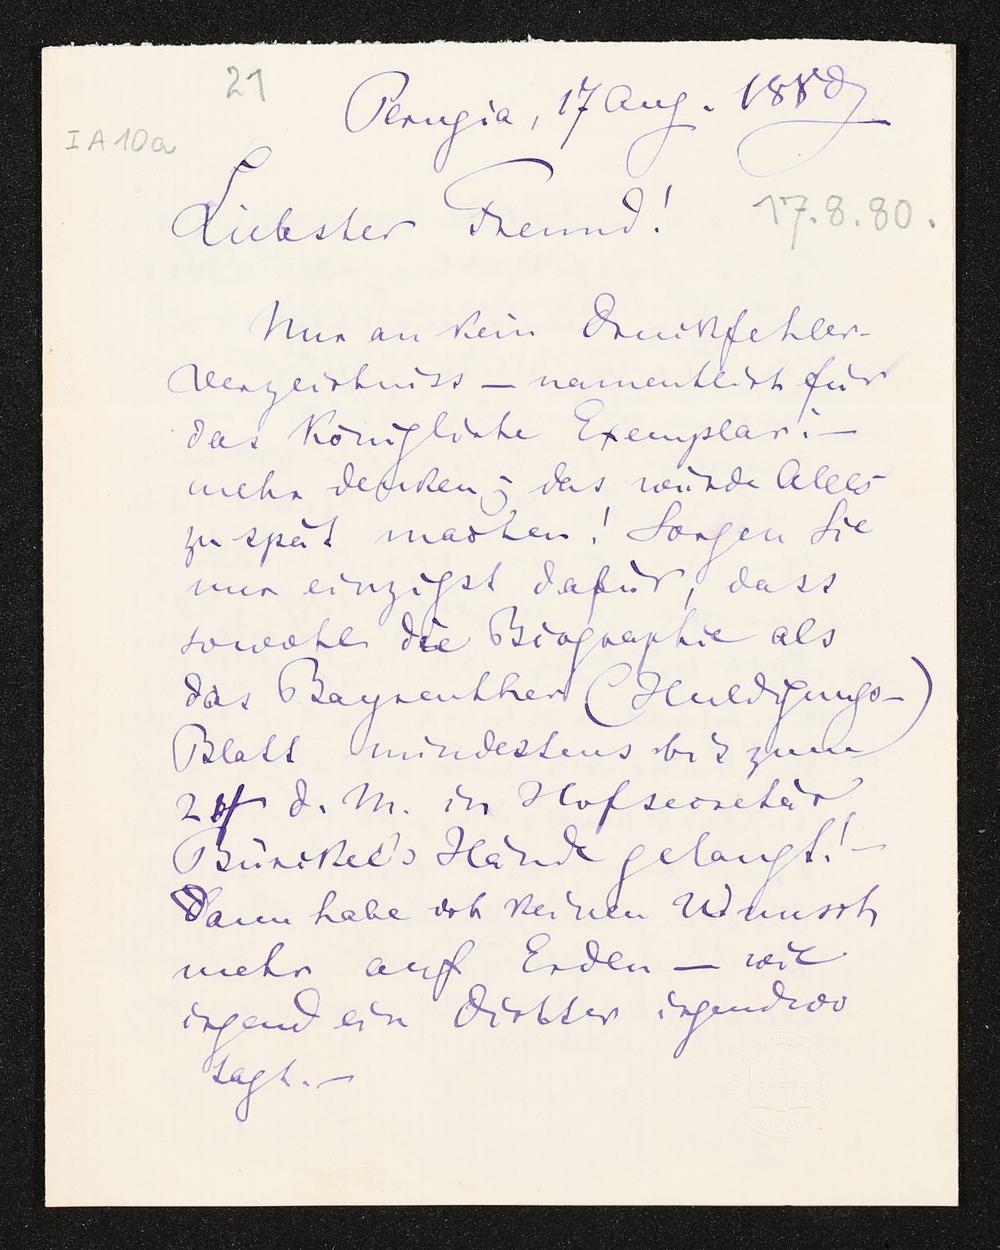 21
Perugia, 17 Aug. 1880
I A 10a
Liebster Freund!
17.8.80.
Nur an kein Druckfehler-
Verzeichniss — namentlich für
das Königliche Exemplar! —
mehr denken; das würde Alles
zu spät machen! Sorgen Sie
nur einzigst dafür, dass
sowohl die Biographie als
das Bayreuther (Huldigungs-)
Blatt mindestens bis zum
d. M. in Hofsecretär
Bürckel's Hände gelangt! —
Dann habe ich keinen Wunsch
mehr auf Erden — wie
irgend ein Dichter irgendwo
sagt. —